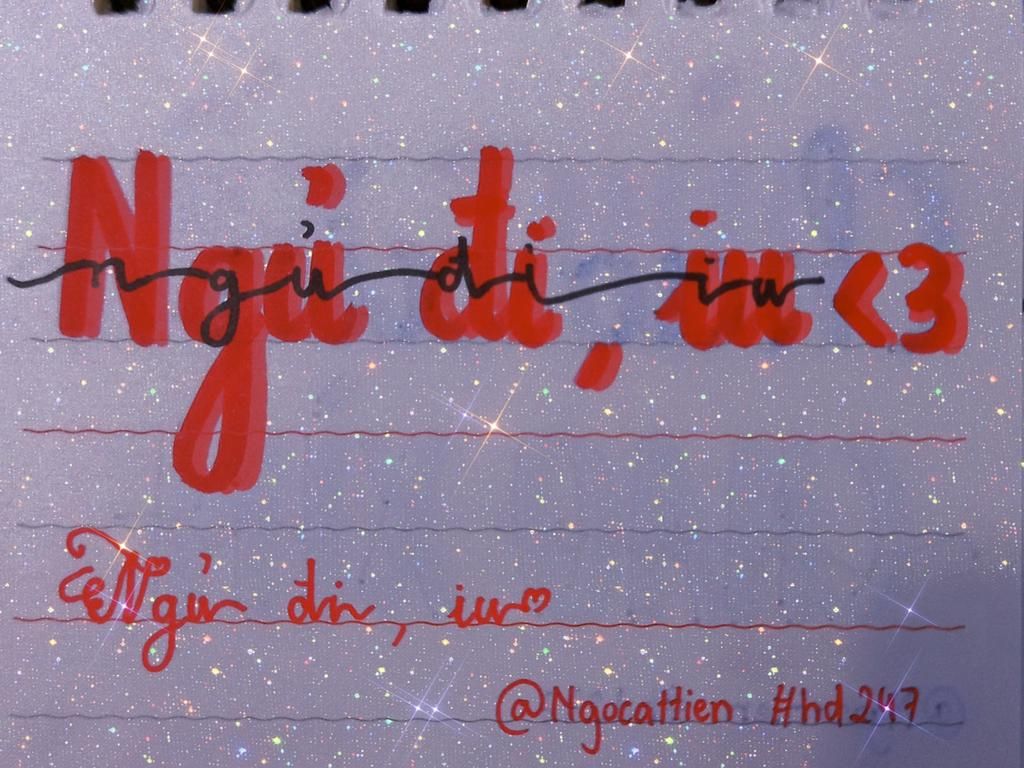 Ngủ đi, iu <3
ngủ đi iu
Ngủ đi, iu
@Ngocattien #hd247